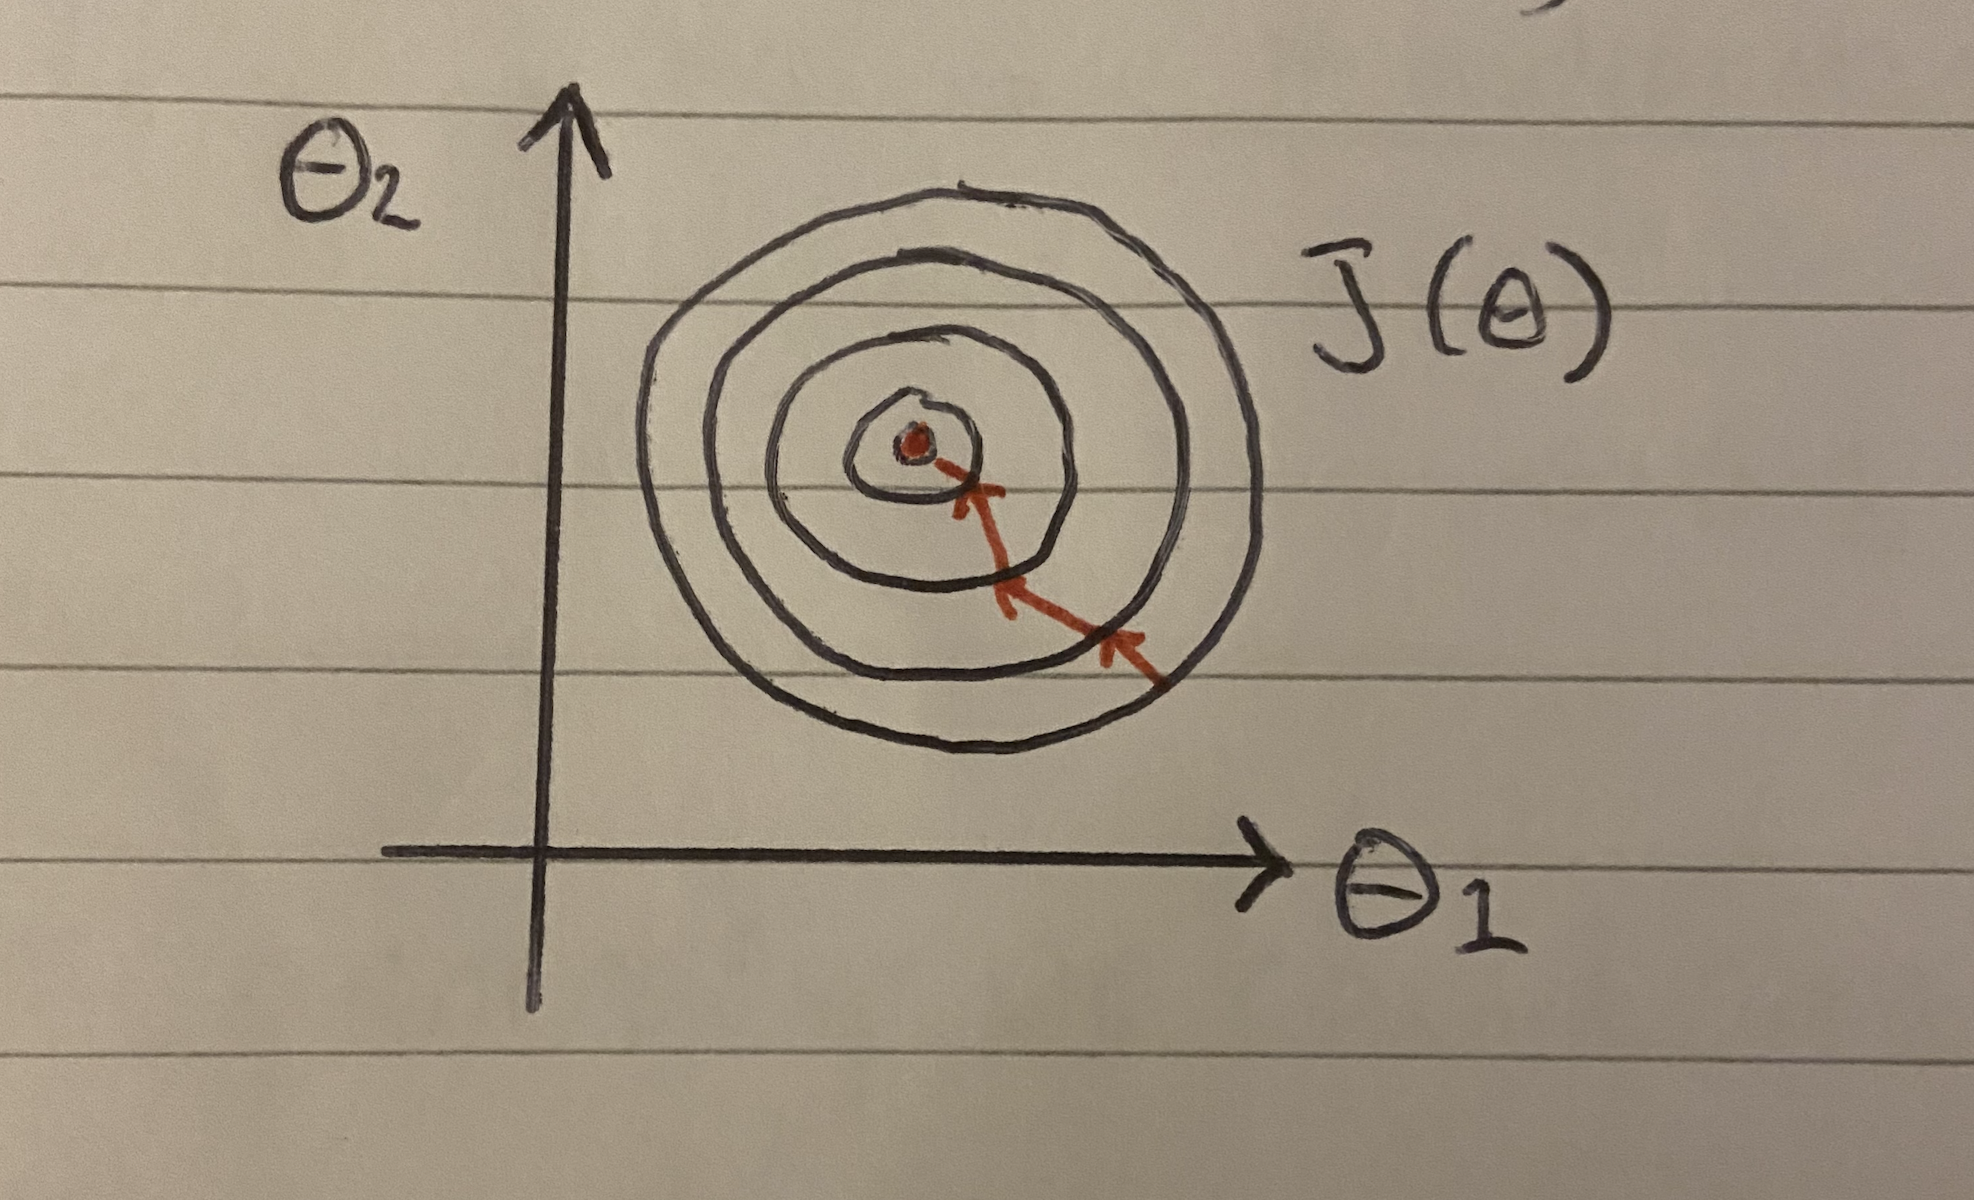 Θ₂
J(Θ)
Θ₁